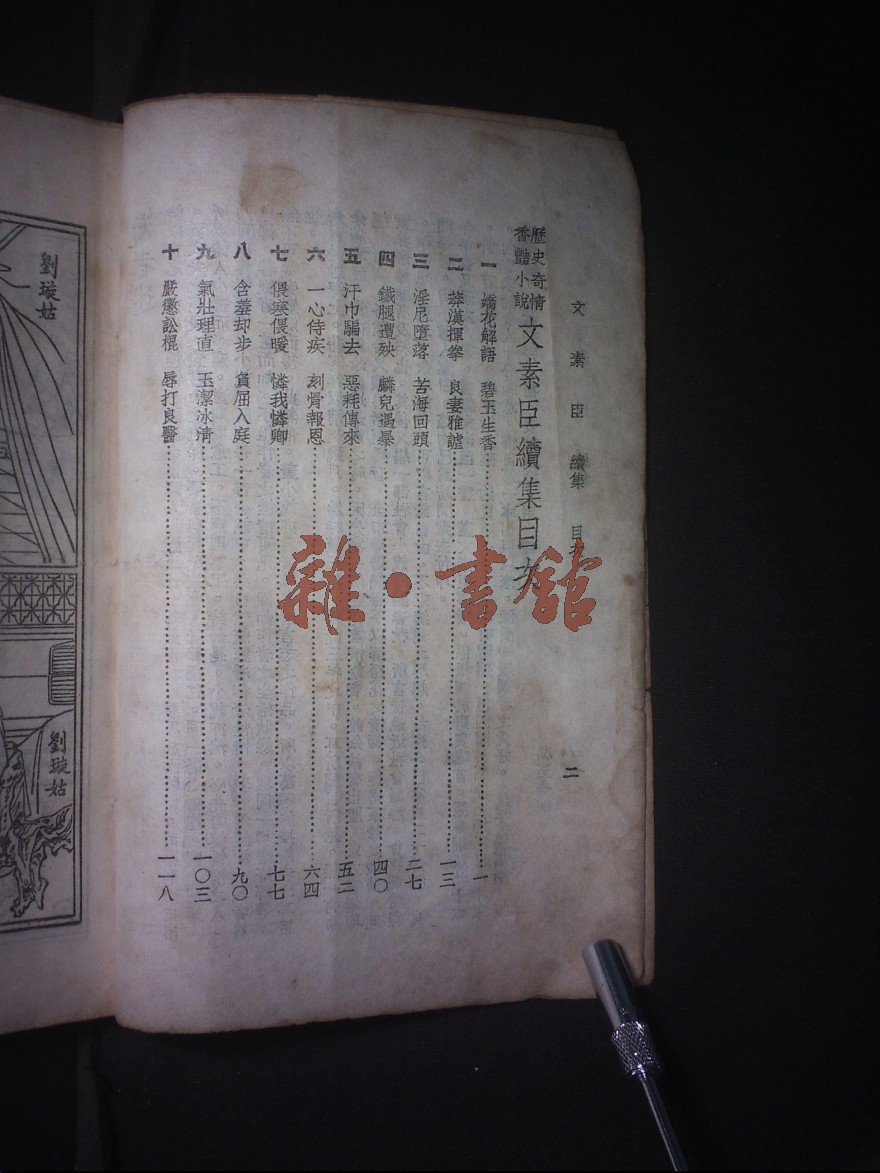 文素臣續集 目
二
歷史奇情
香豔小說
文素臣續集目次
一 嬌花解語 碧玉生香 一
二 莽漢揮拳 良妻雅謔 一三
三 淫尼墮落 苦海回頭 二七
四 鐵腿遭殃 麟兒遇暴 四〇
五 汗巾騙去 惡耗傳來 五二
六 一心侍疾 刻骨報恩 六四
七 偎寒偎暖 憐我憐卿 七七
八 含羞却步 負屈入庭 九〇
九 氣壯理直 玉潔冰清 一〇三
十 嚴懲訟棍 辱打良醫 一一八
劉璇姑
劉璇姑
雜·書館